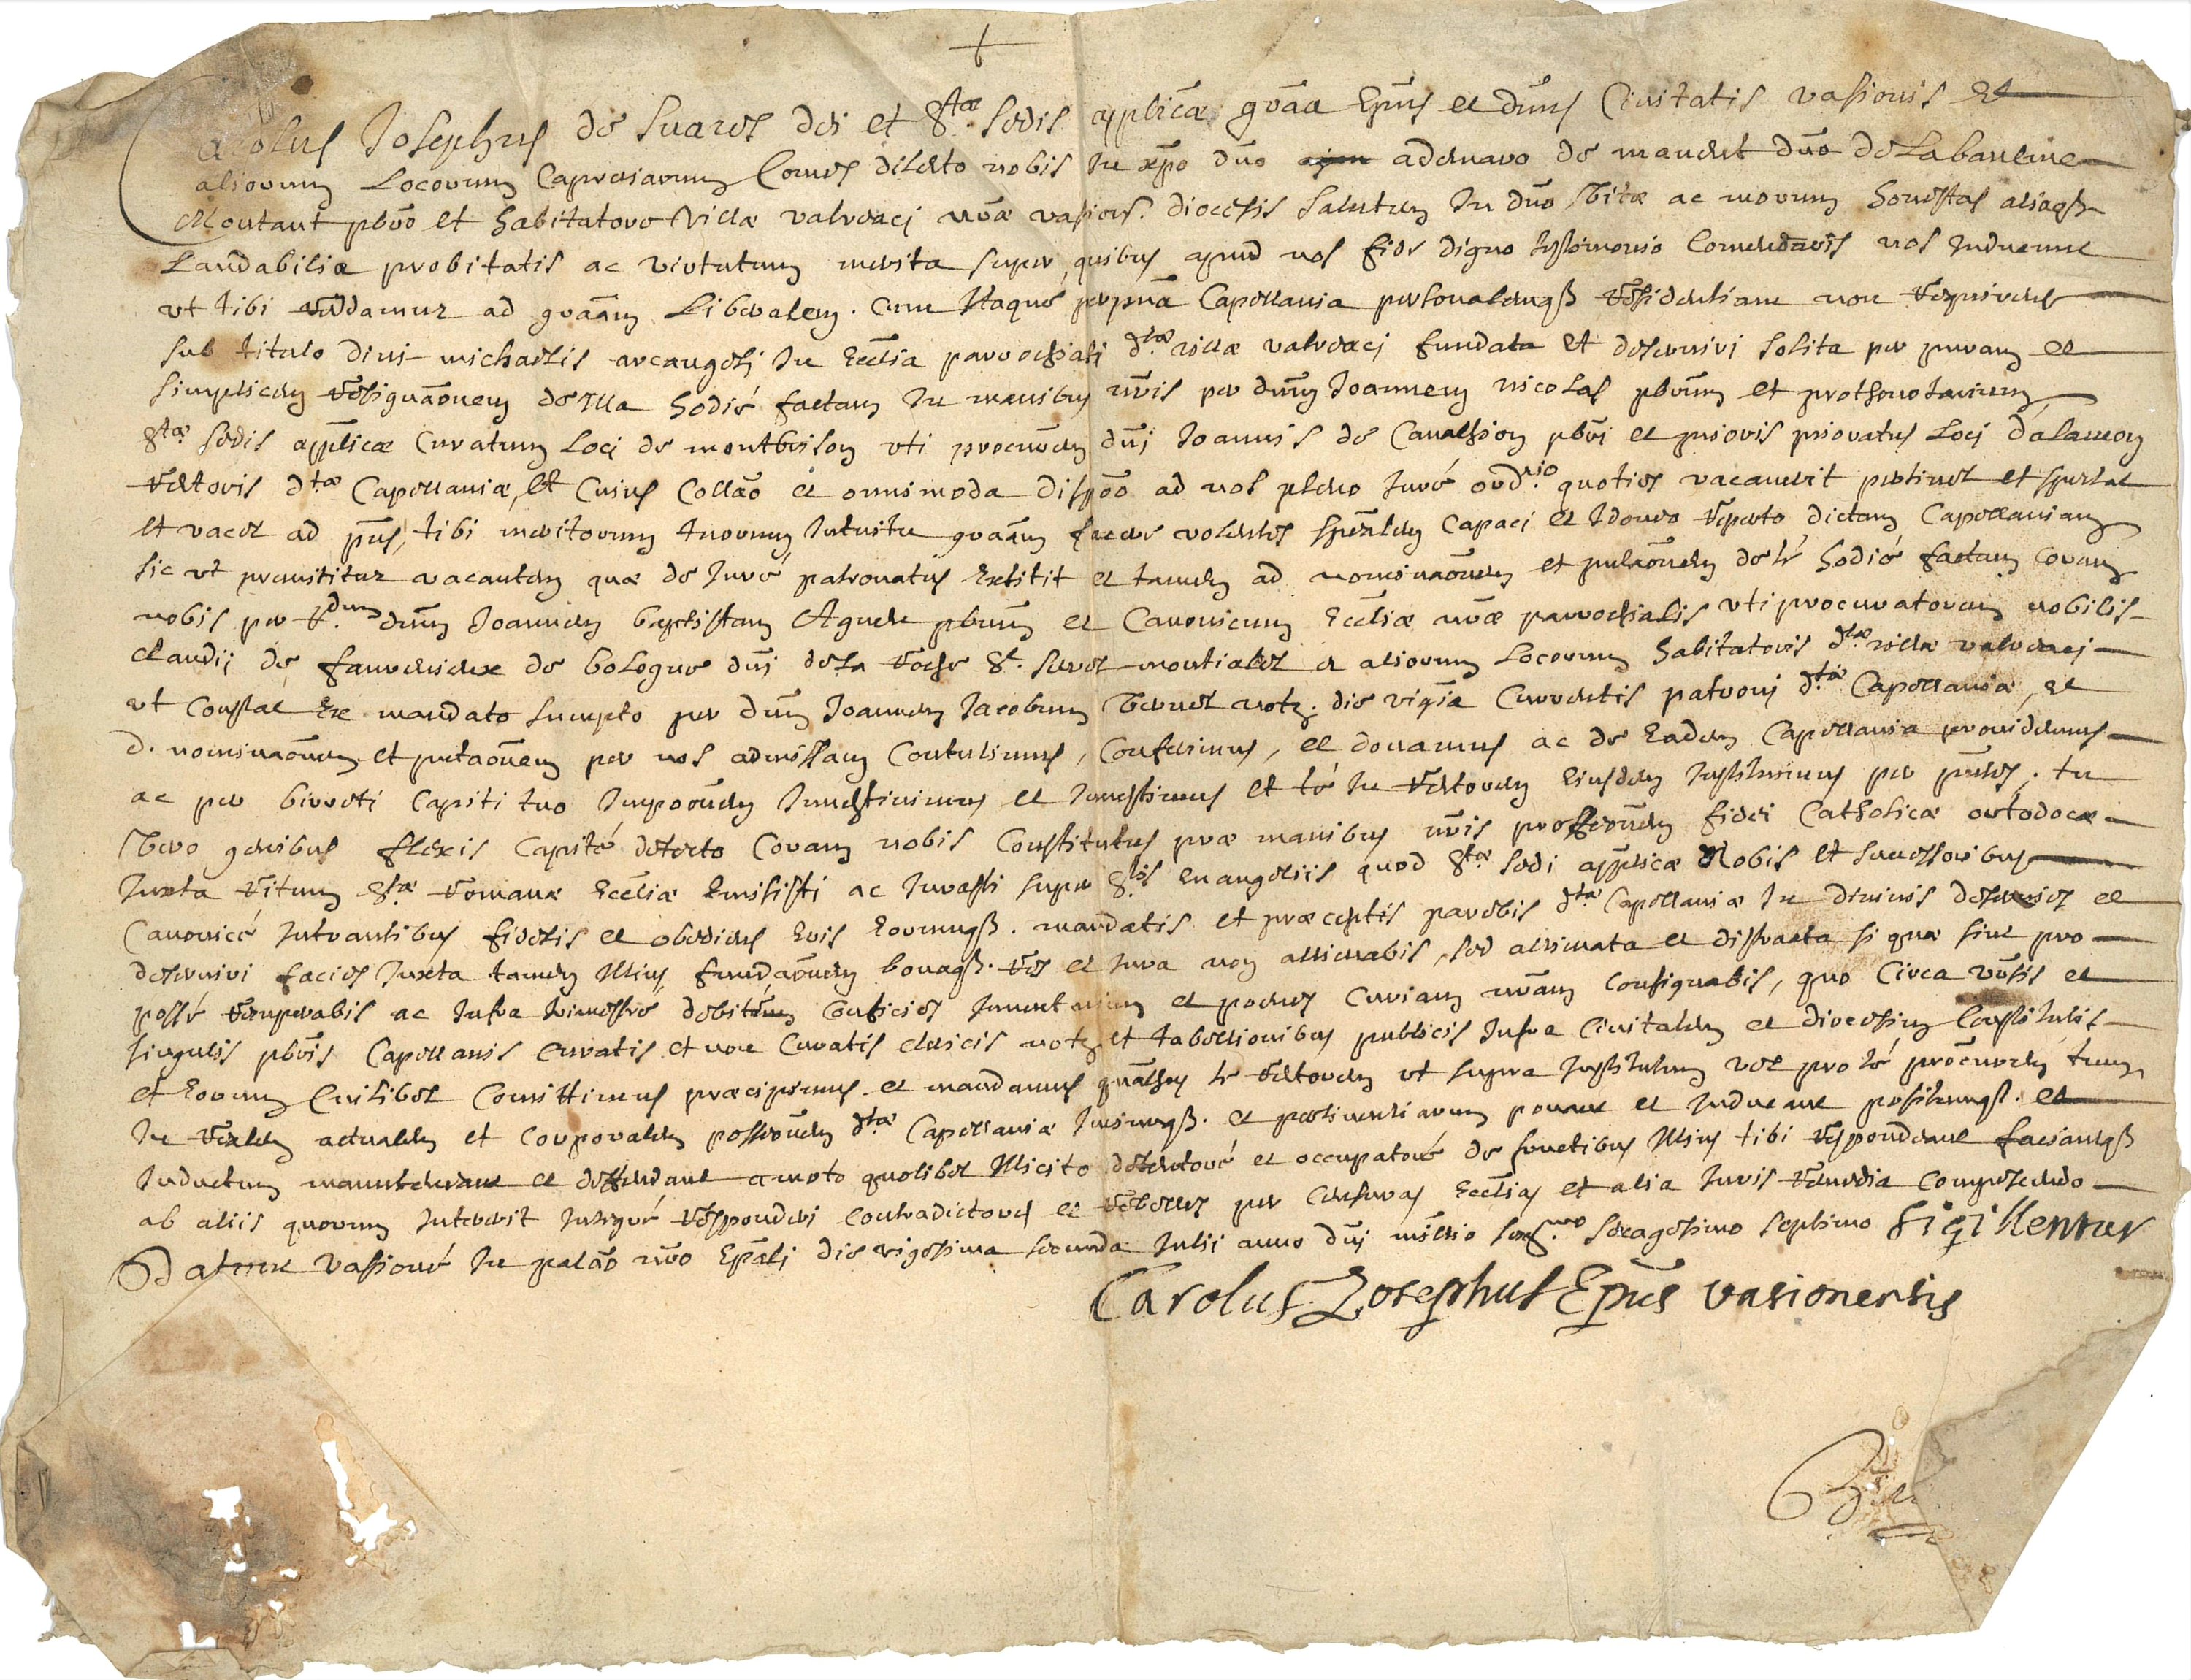 +
Carolus Josephus de Suares dei et S.tae Sedis applicae grãa Epũs et dñus Civitatis vasionis et
aliorum Locorum Caprariarum Comes dilecto nobis in xp̃o dño ademaro de mandet dño de La bau
Montant pbr̃o et habitatori Villae valreaci nr̃ae vasions. diocesis Salutem In dño Vitae ac morum honestas aliaq
Laudabilia probitatis ac virtutum merita super quibus apud nos fide digno testimonio Comendaris nos Inducunt
ut tibi reddamur ad grãam Liberalem. cum Itaque perpr̃uã Capellania personalemq residentiam non requirens
sub titulo divi michaelis arcangeli In Ecclia parrochiali d.tae villae valreaci fundata et deserviri solita per puram et
simplicem resignãonem de Illa hodie factam In manibus nr̃is per dñum Joannem nicolas pbr̃um et prothonotarium
S.tae Sedis applicae Curatum Loci de montbrison uti procur̃em dñi Joannis de Cavalhion pbr̃i et prioris prioratus Loci dalamon
rectoris d.tae Capellaniae, et Cuius Collão et omnimoda dispõo ad nos pleno Jure ord.rio quoties vacaverit pertinet et spectat
et vacet ad pñs, tibi meritorum tuorum Intuitu grãam facere volentes spẽalem Capaci et Idoneo reperto dictam Capellaniam
sic ut premittitur vacantem quae de Jure patronatus existit et tamen ad nominãonem et pñtãonem de te hodie factam Coram
nobis per R.dum dñum Joannem baptistam Agnelli pbr̃um et Canonicum Eccliae nr̃ae parrochialis uti procuratorem nobilis
claudii de fauchier de bologne dñi de La roche St. secret montialet et aliorum Locorum habitatoris d.tae villae valreaci
ut Constat Ex mandato sumpto per dñum Joannem Jacobum notr. die currentis patroni d.tae Capellaniae, et
d. nominãonem et pñtãonem per nos admissam Contulimus, Conferimus, et donamus ac de Eadem Capellania providemus
ac per birreti Capiti tuo Impõnem Investivimus et Investimus et te In rectorem Eiusdem Instituimus per pñtes. tu
Vero genibus flexis Capite detecto Coram nobis Constitutus prae manibus nr̃is professionem fidei Catholicae ortodocae
Juxta ritum S.tae romanae Eccliae Emisisti ac Jurasti super S.tis Evangeliis quod S.tae Sedi applicae Nobis et successoribus
Canonice Intrantibus fidelis et obediens Eris Eorumq. mandatis et praeceptis parebis d.tae Capellaniae In divinis deservies et
deserviri facies Juxta tamen Illius fundãonem bonaq. res et Jura non alienabis, sed alienata et distracta si quae sint pro
posse recuperabis ac Infra trimestre debitum Conficies Inventarium et penes Curiam nr̃am Consignabis, quo Circa vñsis et
singulis pbr̃is Capellanis Curatis et non Curatis clericis notr. et tabellionibus publicis Infra Civitatem et diocesim Constitutis
et Eorum Cuilibet Committimus praecipimus et mandamus quãthus te rectorem ut supra Institutum vel pro te procur̃em tuum
In realem actualem et corporalem possessionem d.tae Capellaniae Juriumq. et pertinentiarum ponant et Inducant positumq. et
Inductum manuteneant et deffendant amoto quolibet Illicito detentore et occupatore de fructibus Illius tibi respondeant faciantq
ab aliis quorum Intererit Integre responderi Contradictores et rebelles per Censuras Ecclias et alia Juris remedia Compescendo
Datum vasione In palão nr̃o Epãli die vigesima secunda Julii anno dñi millẽio sexg.mo sexagesimo septimo Sigilletur
Carolus Josephus Epũs vasionensis